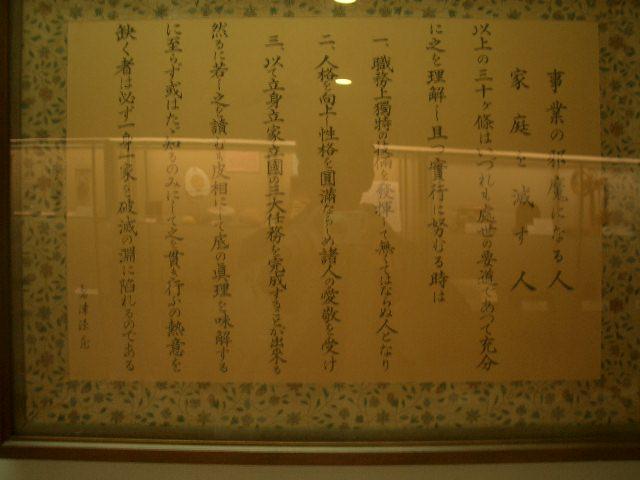 事業の邪魔になる人
家庭を滅す人
以上の三十ヶ條はいづれも處世の要道であつて充分
に之を理解し且つ實行に努むる時は
一、職務上獨特の技倆を發揮して無くてはならぬ人となり
二、人格を向上し性格を圓滿ならしめ諸人の愛敬を受け
三、以て立身立家立國の三大任務を完成することが出來る
然るに若し之を讀むも皮相にして底の眞理を味解する
に至らず或はたゞ知るのみにして之を貫き行ふの熱意を
缺く者は必ず一身一家を破滅の淵に陷れるのである